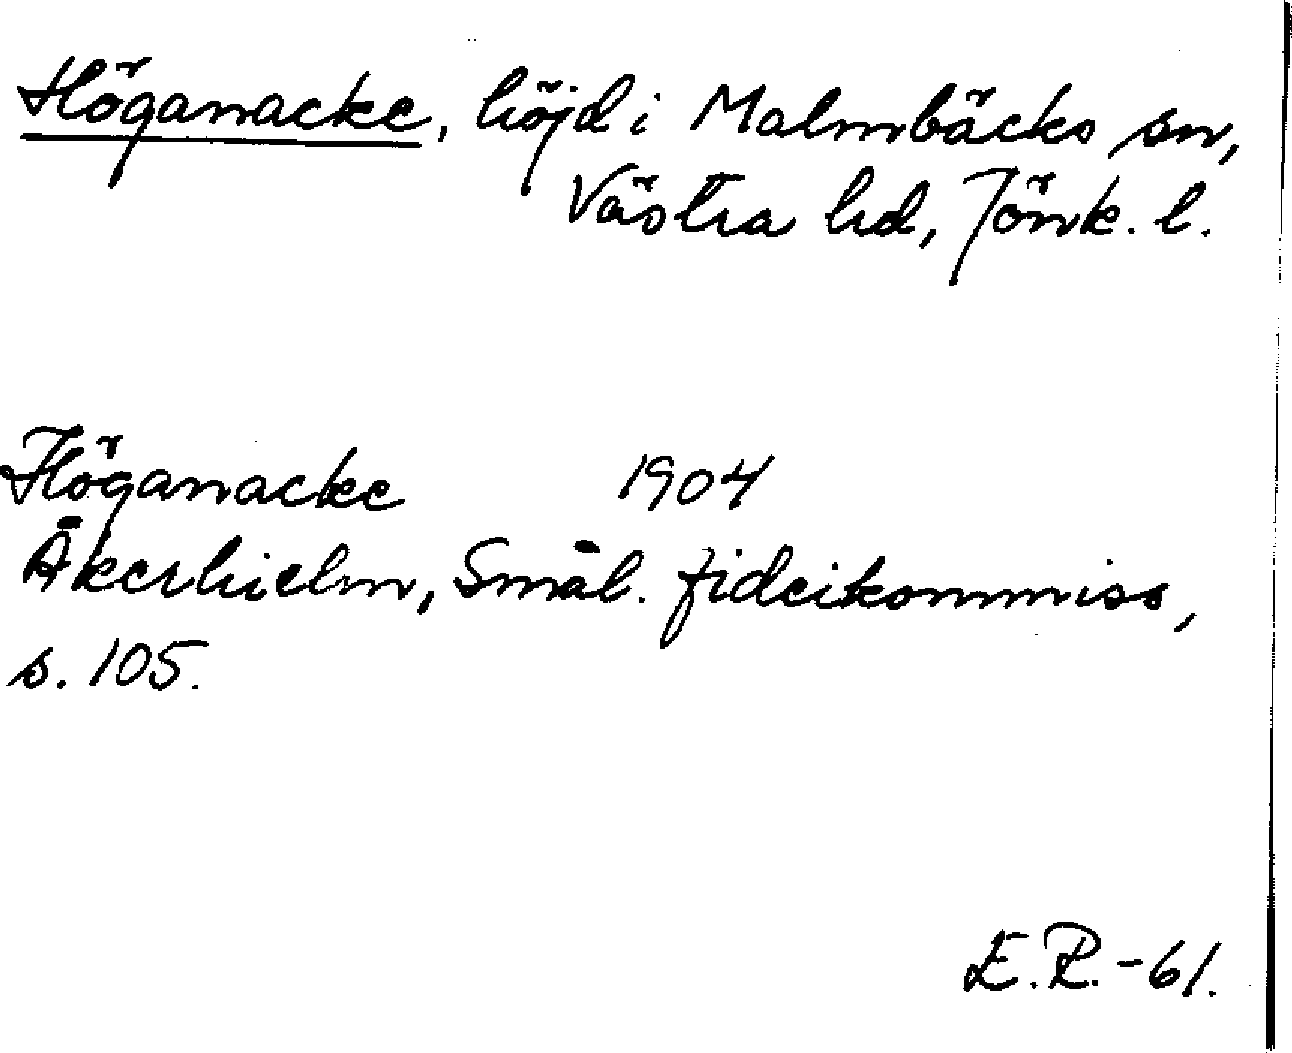 Höganacke, höjd i Malmbäcks sn,
Västra hd, Jönk. l.
Höganacke 1904
Åkerhielm, Smål. fideikommiss,
s. 105.
E.P.-61.